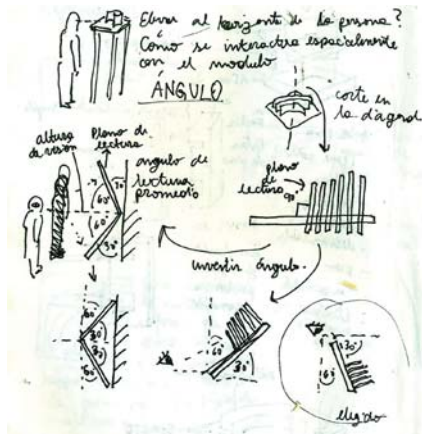 Elevar al horizonte de la persona?
Cómo se interactua espacialmente
con el modulo
ÁNGULO
corte en
la diagonal
altura
de visión
Plano de
lectura
angulo de
lectura
promedio
30°
60°
60°
30°
plano
de
lectura
90°
invertir ángulo.
60°
30°
30°
60°
60°
30°
30°
60°
elegido